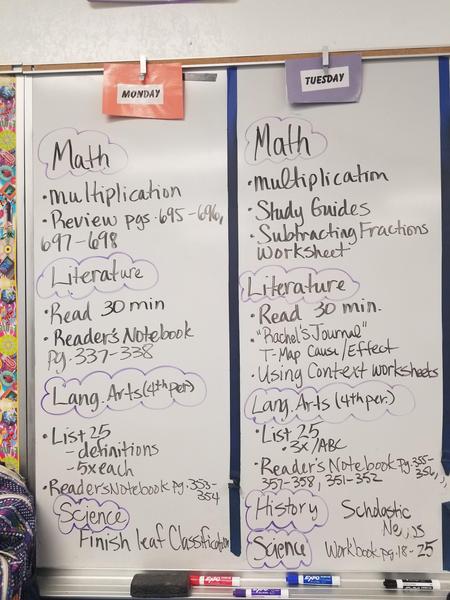 MONDAY
Math
• multiplication
• Review pgs. 695-696,
697-698
Literature
• Read 30 min
• Reader's Notebook
pg. 337-338
Lang. Arts (4th per)
• List 25
- definitions
- 5x each
• Readers Notebook pg. 353-
354
Science
Finish leaf Classification
TUESDAY
Math
• multiplication
• Study Guides
• Subtracting Fractions
Worksheet
Literature
• Read 30 min.
• "Rachel's Journal"
T-Map Cause/Effect
• Using Context worksheets
Lang. Arts (4th per.)
• List 25
• 3x/ABC
• Reader's Notebook pg. 355-
356,
357-358, 351-352
History Scholastic
Science Workbook pg. 18-25
EXPO
EXPO
EXPO
EXPO